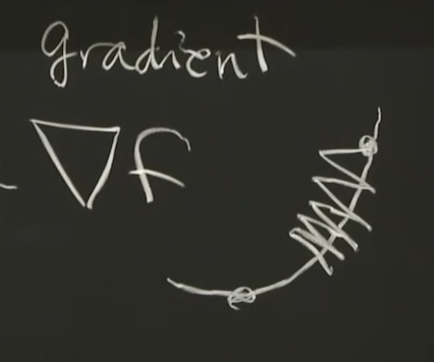 gradient
∇f